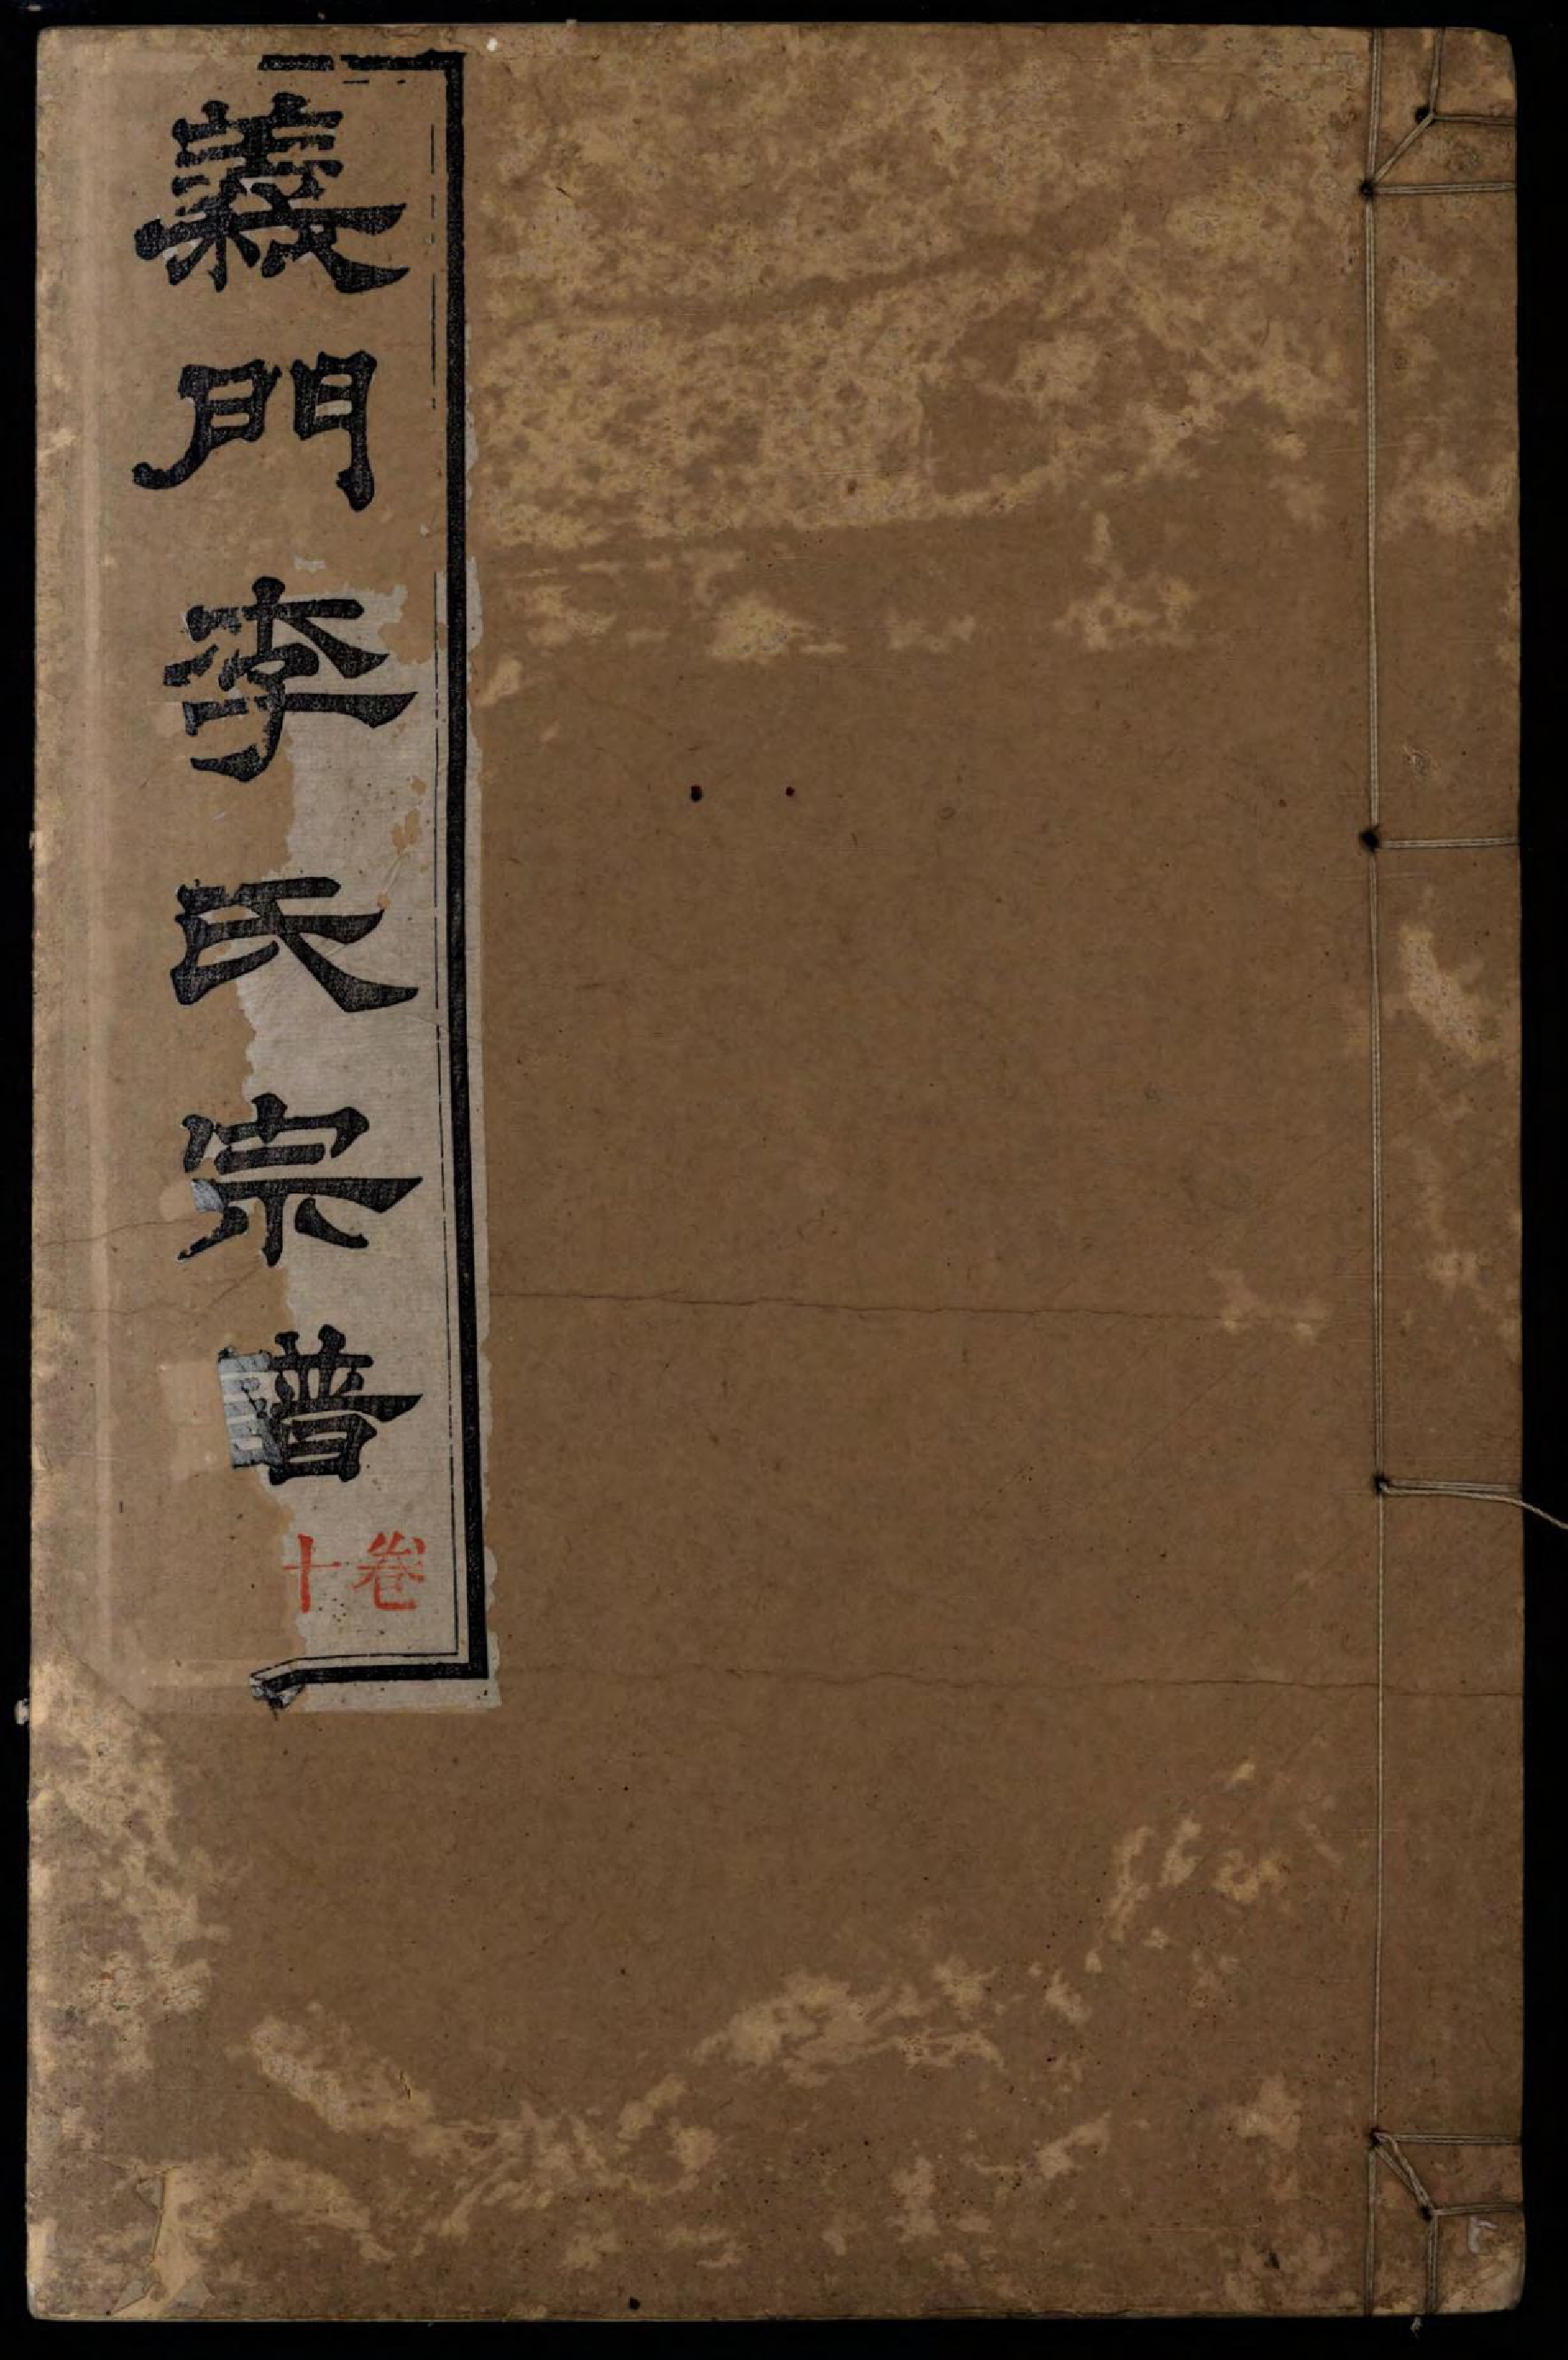 義門李氏宗譜
卷十